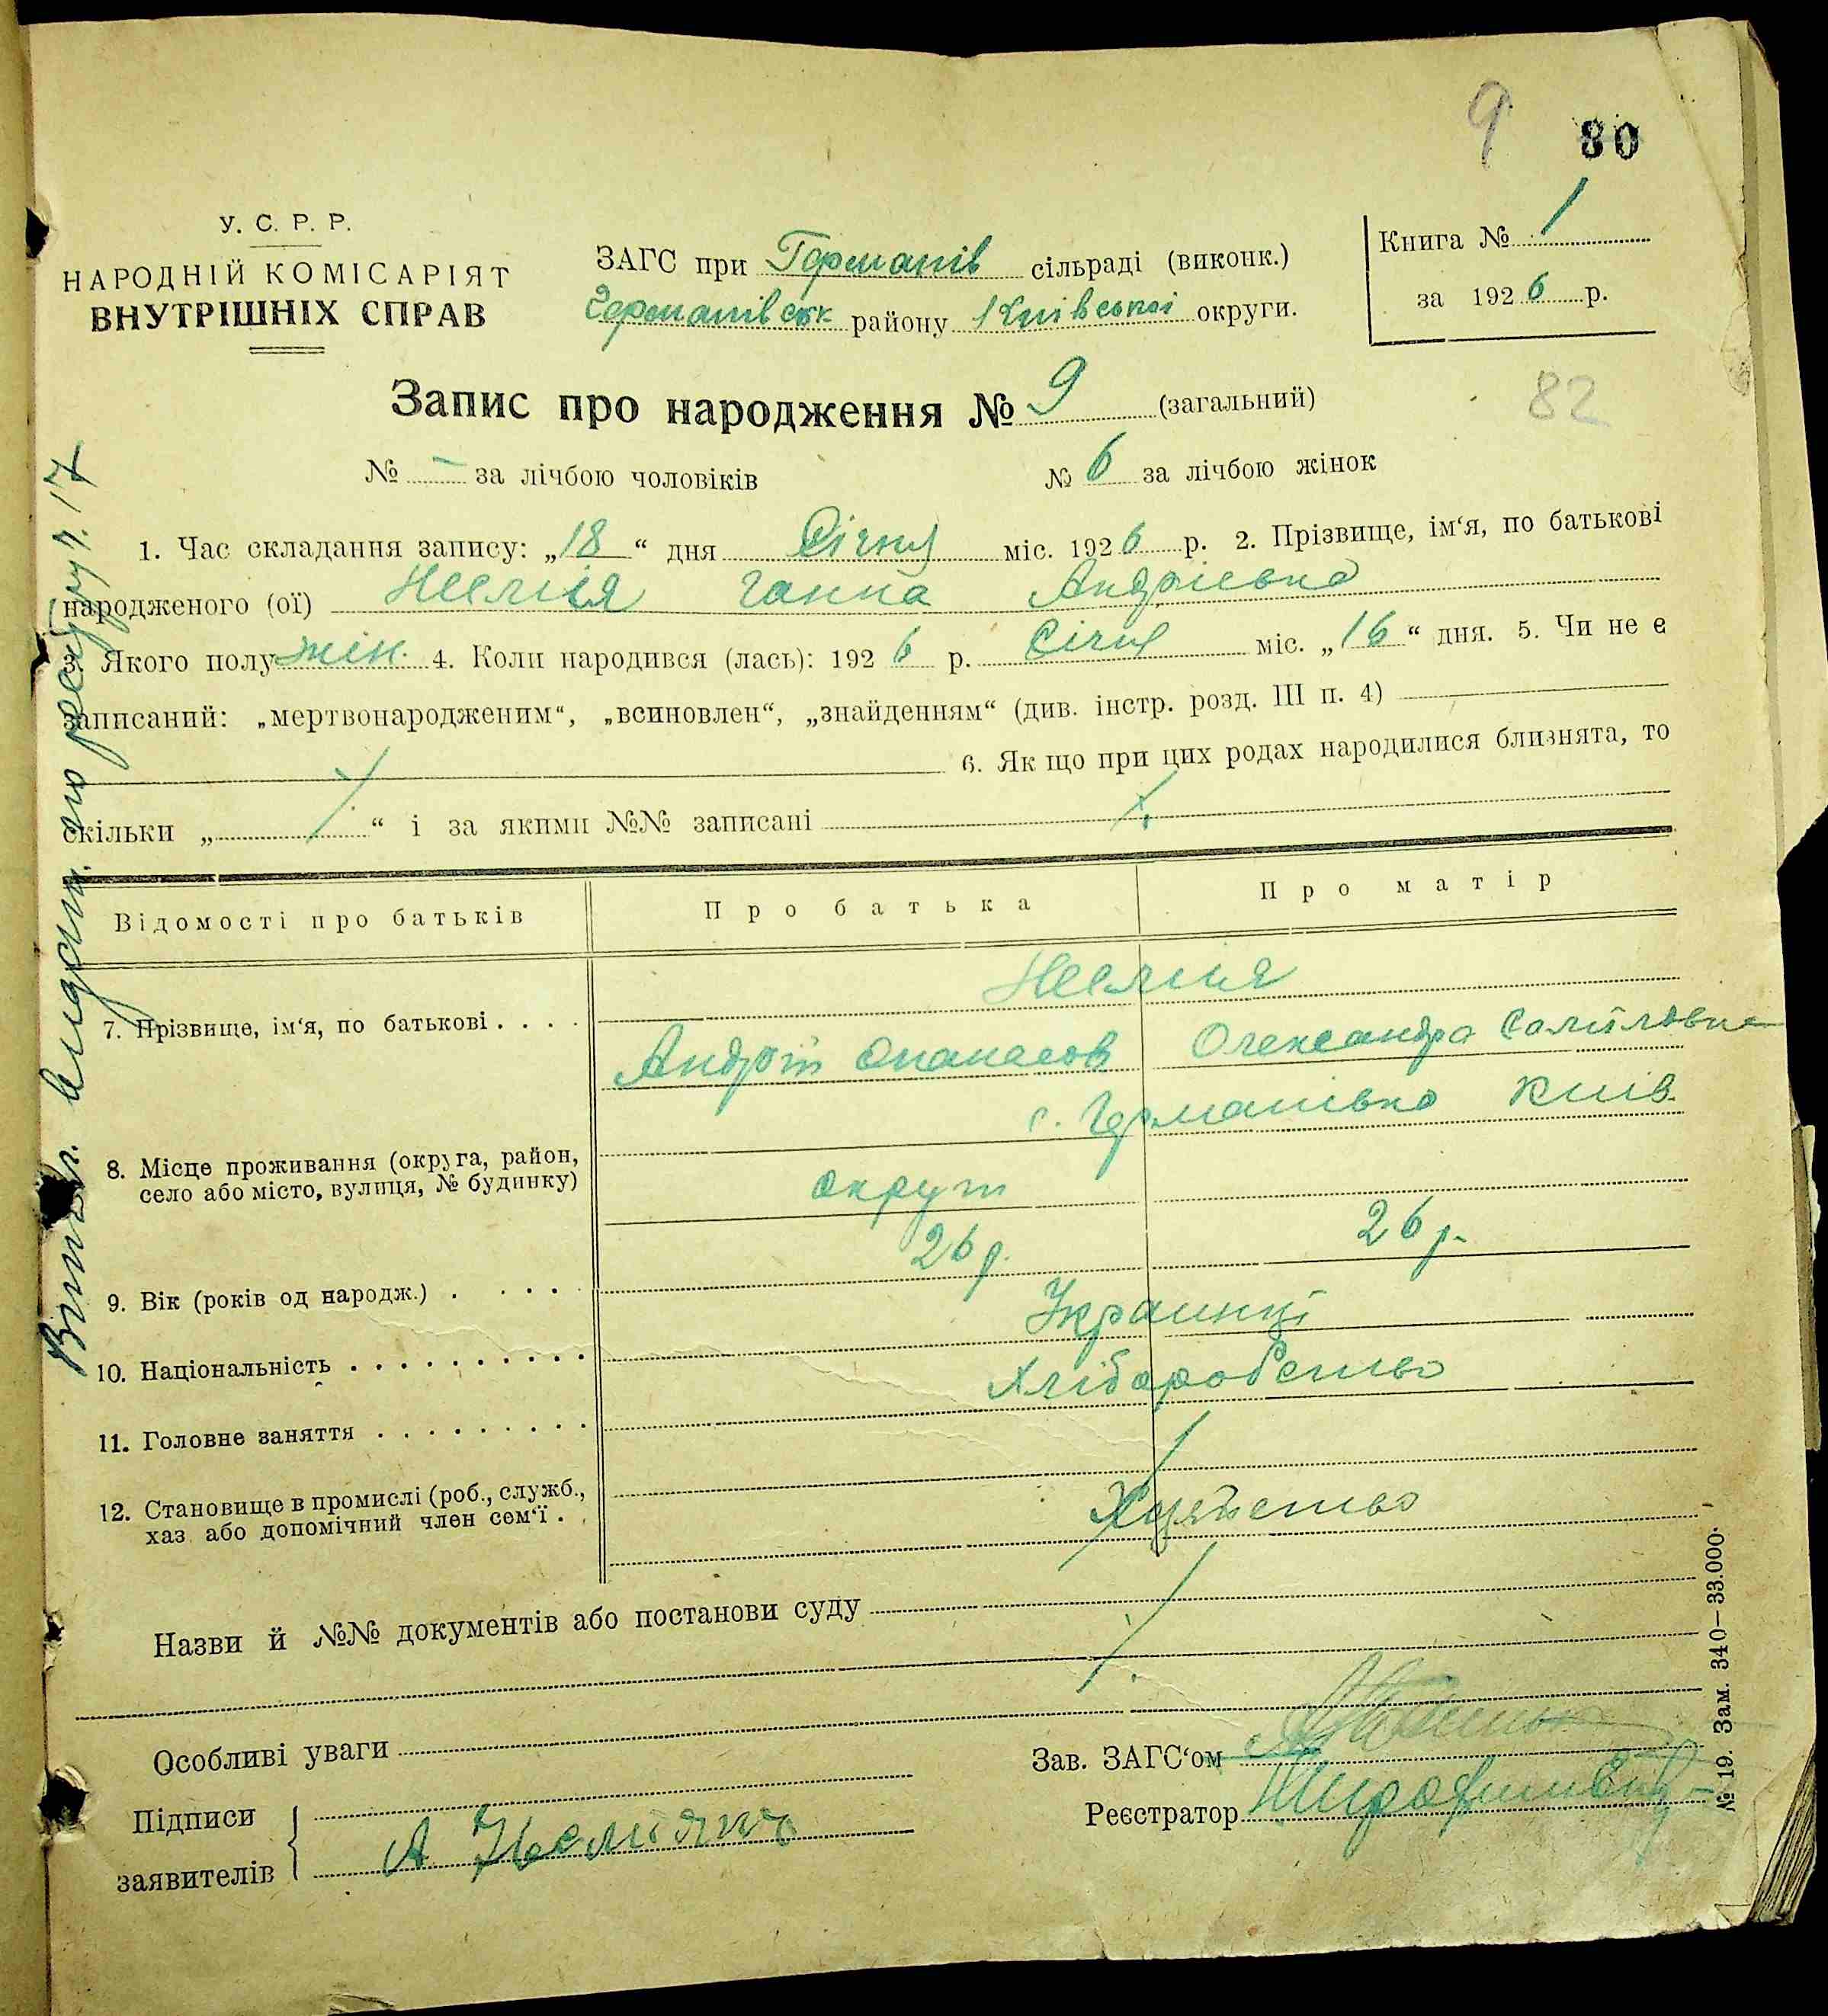 9 80
У. С. Р. Р.
НАРОДНІЙ КОМІСАРІЯТ
ВНУТРІШНІХ СПРАВ
ЗАГС при Германів сільраді (виконк.)
Германівськ району Київської округи.
Книга № 1
за 1926 р.
Запис про народження № 9 (загальний)
82
№ – за лічбою чоловіків № 6 за лічбою жінок
1. Час складання запису: „18“ дня Січня міс. 1926 р. 2. Прізвище, ім‘я, по батькові
народженого (ої) Ганна Андріевна
3. Якого полу жін. 4. Коли народився (лась): 1926 р. Січня міс. „16“ дня. 5. Чи не є
записаний: „мертвонародженим“, „всиновлен“, „знайденням“ (див. інстр. розд. III п. 4)
6. Як що при цих родах народилися близнята, то
скільки „ “ і за якими №№ записані
Відомості про батьків Про батька Про матір
7. Прізвище, ім‘я, по батькові . . . .
Андрій Опанасов Олександра
с. Германівка Київ.
8. Місце проживання (округа, район,
село або місто, вулиця, № будинку)
округи
26 р. 26 р.
9. Вік (років од народж.) . . . .
Украинці
10. Національність . . . . . . . . . .
Хліборобство
11. Головне заняття . . . . . . . . .
12. Становище в промислі (роб., служб.,
хаз. або допомічний член сем‘ї .
Назви й №№ документів або постанови суду
Особливі уваги
Зав. ЗАГС‘ом
Підписи
заявителів
А.
Реєстратор
№ 19. Зам. 340—33.000.
видан. по реєстру ч. 17